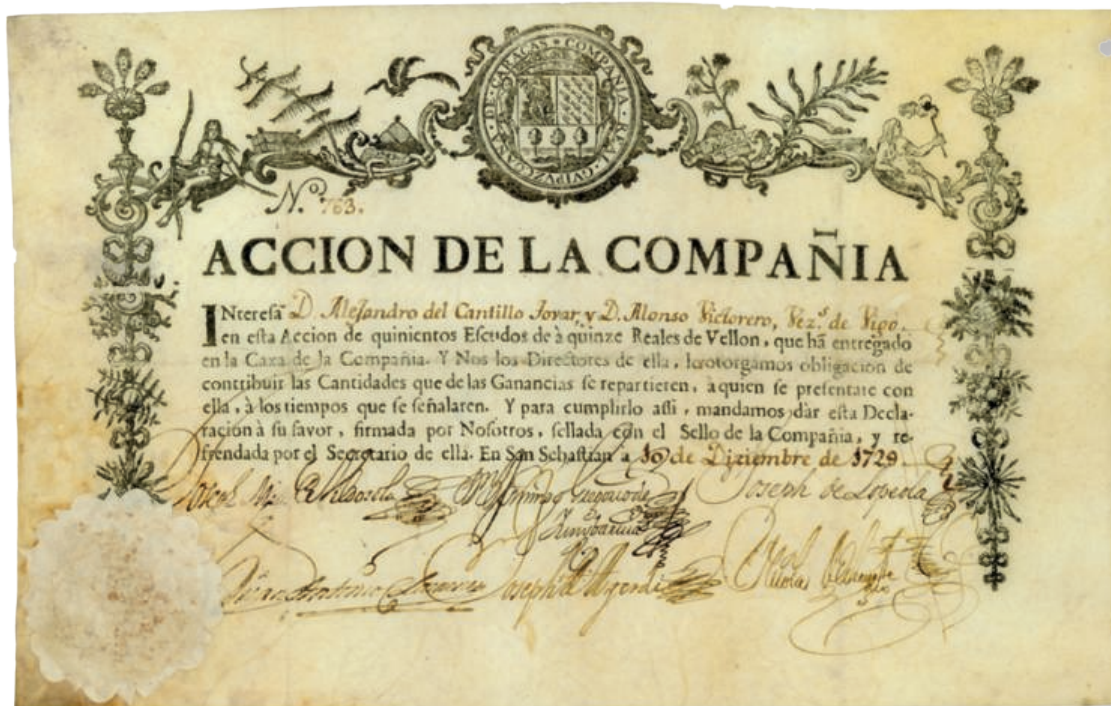 COMPAÑIA·REAL·GVIPVZCOANA·DE·CARACAS
N.º 763.
ACCION DE LA COMPAÑIA
INteresã D. Alejandro del Cantillo Jovar, y D. Alonso Victorero, Vez.s de Vigo.
en esta Accion de quinientos Escudos de à quinze Reales de Vellon, que hã entregado
en la Caxa de la Compañia. Y Nos los Directores de ella, le otorgamos obligacion de
contribuir las Cantidades que de las Ganancias se repartieren, à quien se presentare con
ella, à los tiempos que se señalaren. Y para cumplirlo assi, mandamos dar esta Decla-
racion à su favor, firmada por Nosotros, sellada con el Sello de la Compañia, y re-
frendada por el Secretario de ella. En San Sebastian a 10 de Diziembre de 1729
Joseph
Domingo
Joseph de Lopeola
Joseph de